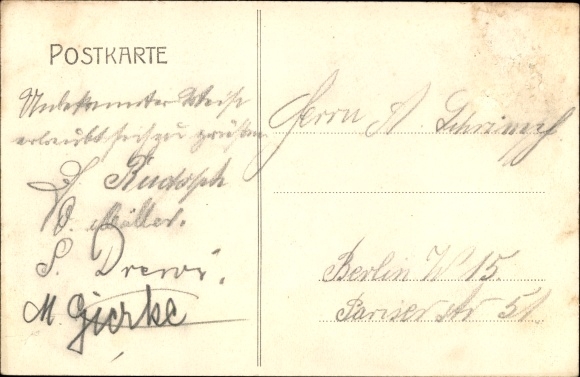 POSTKARTE
Unbekannter Weise
erlaubt sich zu grüßen
Rudolph
O. Müller.
S. Drews.
M. Gierke
Herrn A. Schrimpf
Berlin W 15
Pariser Str 51